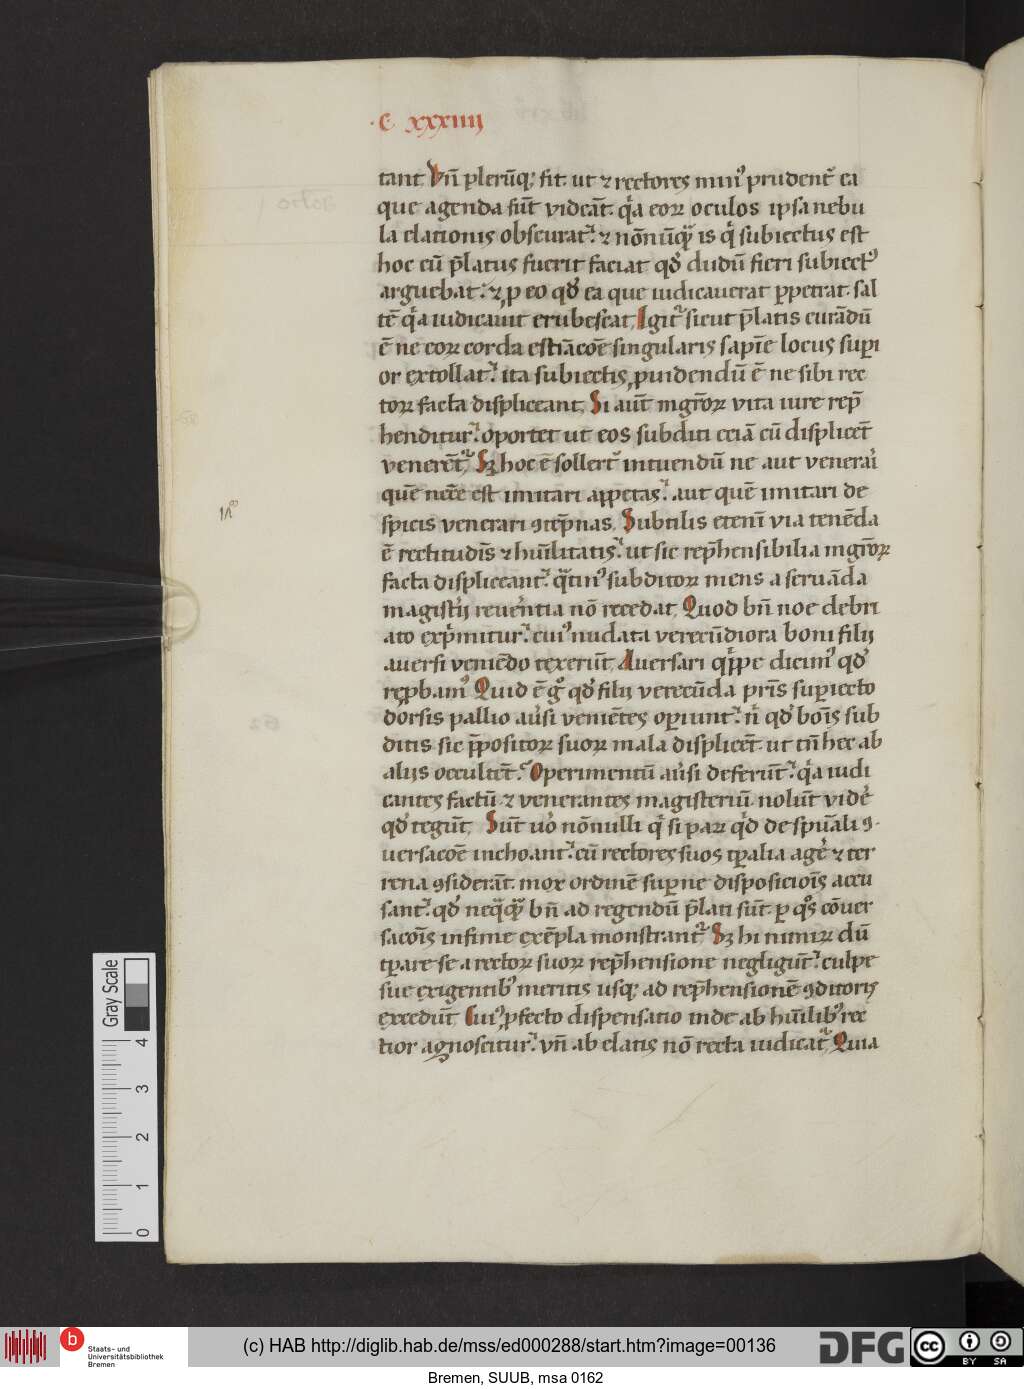 · C xxxiiij
tant Vn̄ plerūq; fit. ut ⁊ rectores min᷒ prudent᷑ ea
que agenda sūt videāt. qͥa eoꝝ oculos ipsa nebu
la elationis obscurat᷑. ⁊ nōnūqᷓ is qͥ subiectus est
hoc cū p̄latus fuerit faciat qd̓ dudū fieri subiect᷒
arguebat. ⁊ ꝓ eo qd̓ ea que iudicauerat ꝑpetrat. sal
tē qͥa iudicauit erubescat. Igit᷑ sicut p̄latis curādū
ē ne eoꝝ corda estiācōe singularis sapīe locus suꝑi
or extollat᷑. ita subiectis ꝓuidendū ē ne sibi rec
toꝝ facta displiceant. Si aūt mgr̄oꝝ vita iure rep̄
henditur. oportet ut eos subditi eciā cū displicēt
venerēt᷑. Sꝫ hoc ē sollert᷑ intuendū ne aut venerai
quē necēe est imitari appetas. aut quē imitari de
spicis venerari ꝯtēp̄nas. Subtilis etenī via tenēda
ē rectitudīs ⁊ hūilitatis. ut sic rep̄hensibilia mgr̄oꝝ
facta displiceant. qᷓtin᷒ subditoꝝ mens a seruāda
magistͥij reuer̄ntia nō recedat. Quod bn̄ noe debri
ato exp̄mitur. cui᷒ nudata verecūdiora boni filij
auersi veniēdo texerūt. Auersari qͥppe dicim᷒ qd̓
reꝓbam᷒. Quid ē gͦ qd̓ filij verecūda prīs suꝑiecto
dorsis pallio au̓si veniētes oꝑiunt. n̄ qd̓ boīs sub
ditis sic p̄positoꝝ suoꝝ mala displicēt. ut tn̄ hec ab
alijs occultēt. Operimentū au̓si deferūt. qͥa iudi
cantes factū ⁊ venerantes magisteriū. nolūt vide̓
qd̓ tegūt. Sūt uo̓ nōnulli qͥ si paꝝ qͥd de spūali ꝯ-
uersacōe inchoant. cū rectores suos tꝑalia age̓ ⁊ ter
rena ꝯsiderāt. mox ordinē suꝑne disposicioīs accu
sant. qd̓ neqᷓqᷓ bn̄ ad regendū p̄lati sūt. ꝑ qͦs cōuer
sacoīs infime exēpla monstrant᷑. Sꝫ hi nimiꝝ dū
tꝑare se a rectoꝝ suoꝝ rep̄hensione negligūt. culpe
sue exigentib᷒ meritis usq; ad rep̄hensionē ꝯditoris
excedūt. Cui᷒ ꝓfecto dispensatio inde ab hūilib᷒ rec
tior agnoscitur. vn̄ ab elatis nō recta iudicat᷑. Quia
Gray Scale
0 1 2 3 4
b Staats- und
Universitätsbibliothek
Bremen
(c) HAB http://diglib.hab.de/mss/ed000288/start.htm?image=00136
DFG
cc BY SA
Bremen, SUUB, msa 0162